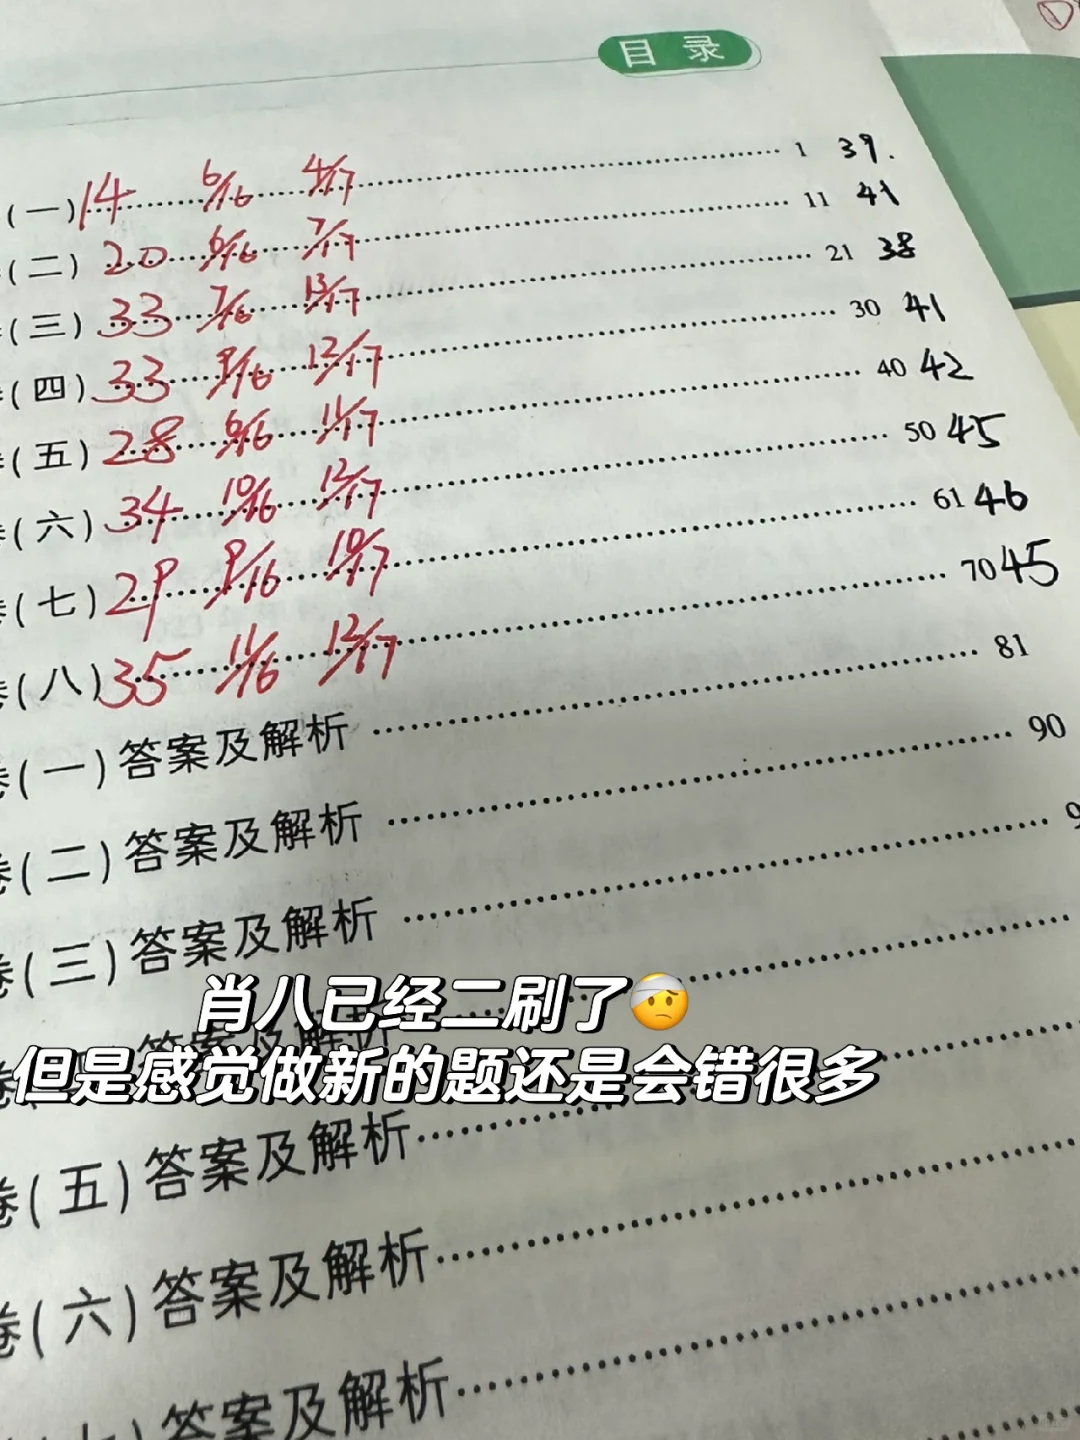 目 录
(一) 14 6/16 4/17 1 39.
(二) 20 6/16 7/17 11 41
(三) 33 7/16 13/17 21 38
(四) 33 9/16 12/17 30 41
(五) 28 6/16 11/17 40 42
(六) 34 10/16 12/17 50 45
(七) 29 9/16 10/17 61 46
(八) 35 11/16 12/17 70 45
卷(一)答案及解析 81
卷(二)答案及解析 90
卷(三)答案及解析 9
肖八已经二刷了🤕
答案及解析
但是感觉做新的题还是会错很多
卷(五)答案及解析
卷(六)答案及解析
答案及解析